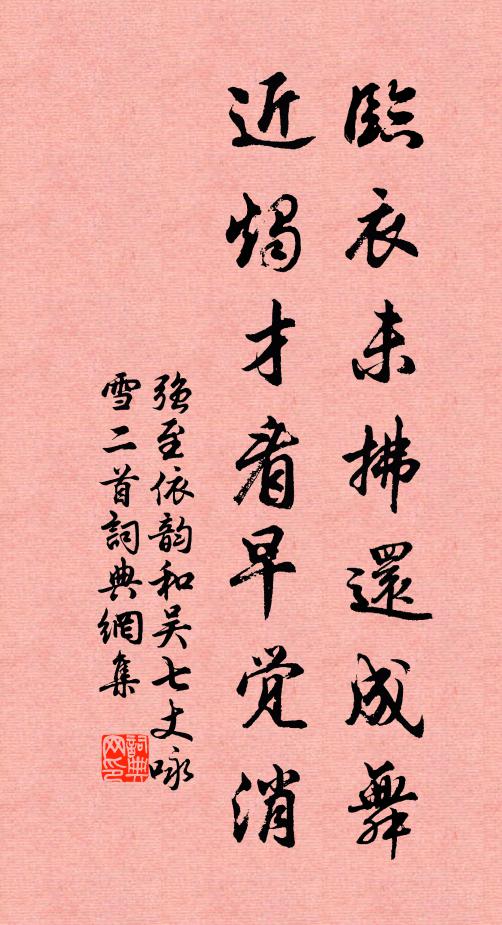 臨衣未拂還成舞
近燭才看早觉消
强至依韵和吴七丈咏
雪二首詞典網集
詞典
网印